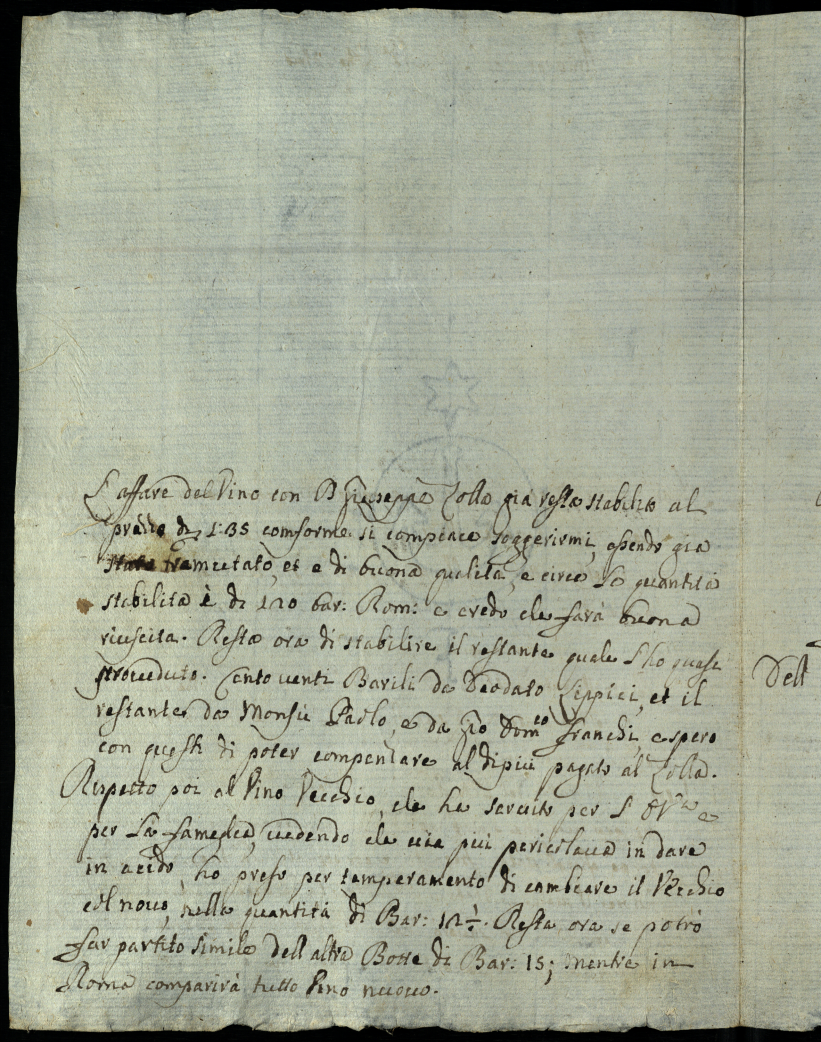 L'affare del Vino con Giuseppe Zolla già resta stabilito al
prezzo di 1:35 comforme si compiace soggerirmi, essendo già
stato tramutato, et è di buona qualità, e circa la quantità
stabilita è di 120 bar: Rom: e credo che farà buona
riuscita. Resta ora di stabilire il restante quale l'ho quasi
proveduto. Cento venti Barili da Deodato Cippici, et il
restante da Monsiù Paolo, e da Gio Dom.co Franchi, e spero
con questi di poter compensare al dipiù pagato al Zolla.
Rispetto poi al Vino Vecchio, che ha servito per e
per la fameglia, vedendo che via più pericolava in dare
in acido, ho preso per temperamento di cambiare il Vecchio
col novo, nella quantità di Bar: 12½. Resta ora se potrò
far partito simile dell'altra Botte di Bar: 15; mentre in
Roma comparirà tutto Vino nuovo.
Dell